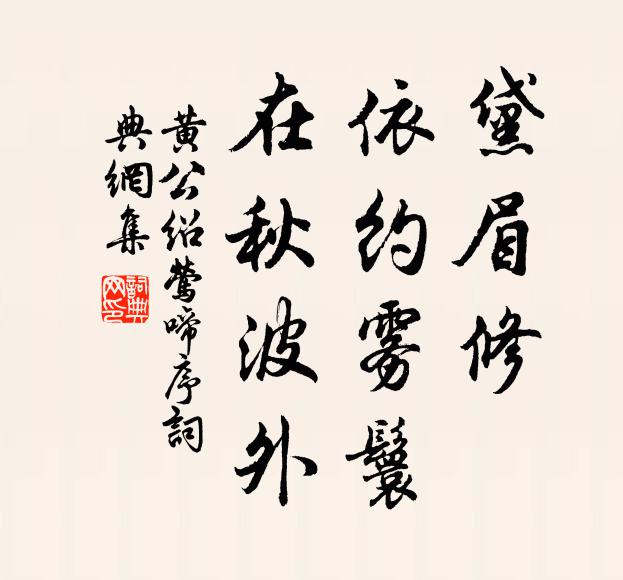 黛眉修
依约雾鬟
在秋波外
黄公绍莺啼序詞
典網集
詞典网印